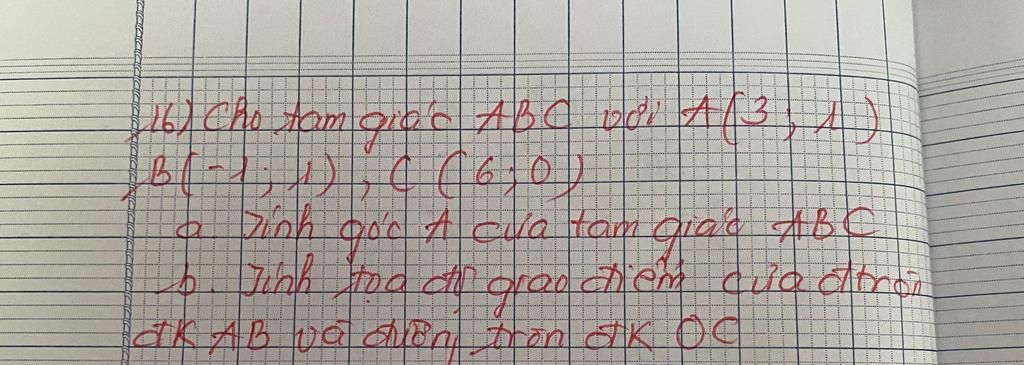 16) Cho tam giác ABC với A(3; 1)
B(-1; 1), C(6; 0)
a. Tính góc A của tam giác ABC
b. Tính toạ độ giao điểm của đtròn
đK AB và đường tròn đK OC